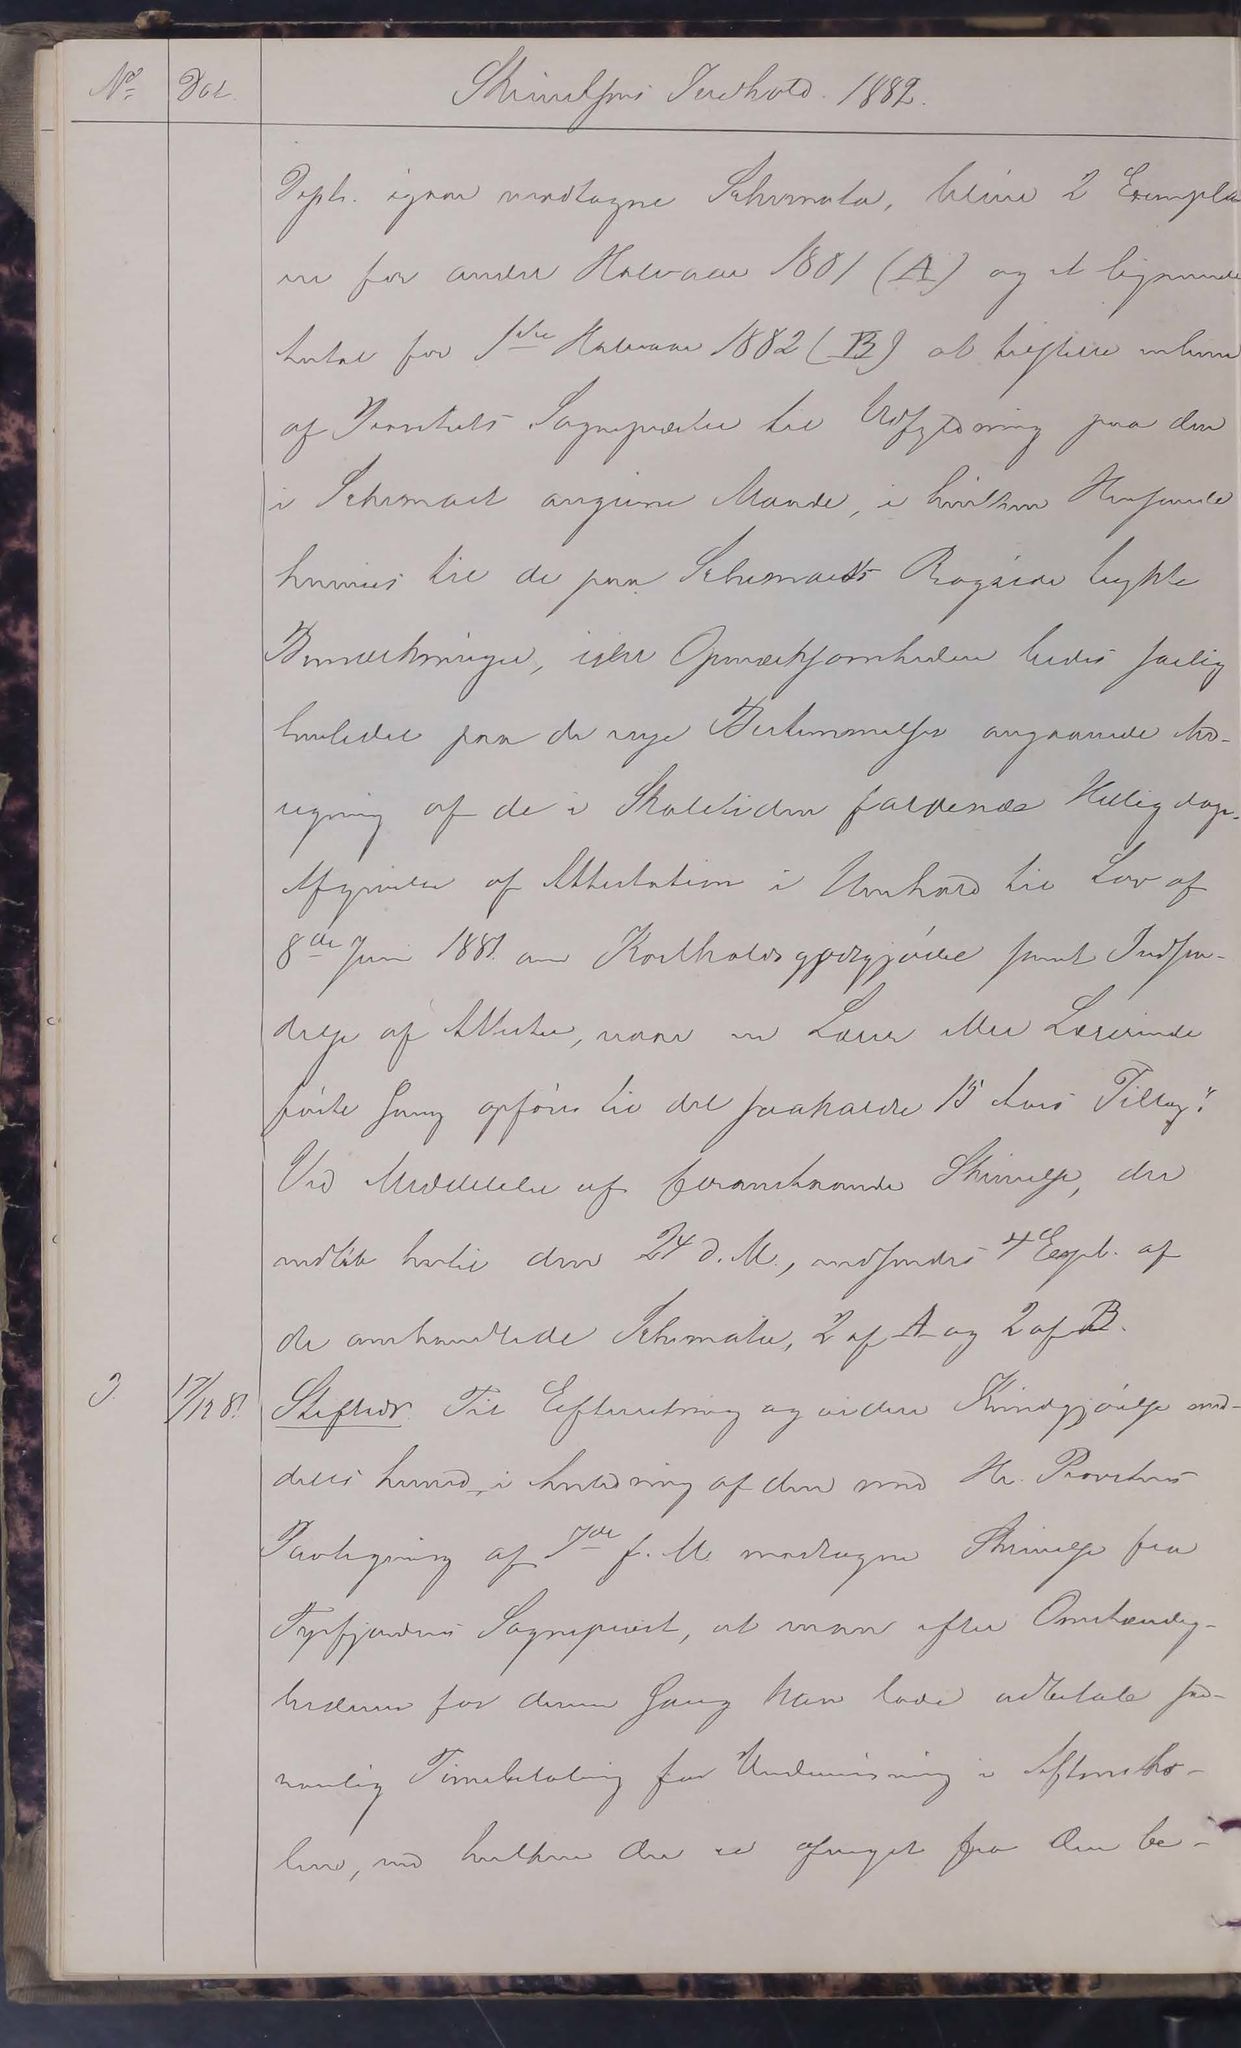 No. Dat. Skrivelsens Indhold. 1882.
Depts. igaar modtagne Schemata, blive 2 Exempla-
rer for andet Halvaar 1881 (A) og et lignende
Antal for 1ste Halvaar 1882 (B) at tilstille enhver
af Provstiets Sognepræster til Udfyldning paa den
i Schemaet angivne Maade, i hvilken Henseende
henvises til de paa Schemaets Bagside trykte
Bemærkninger, idet Opmærksomheden ledes særlig
henledet paa de nye Bestemmelser angaaende Be-
regning af de i Skoletiden faldende Helligdage,
Afgivelse af Attestation i Henhold til Lov af
8de Juni 1881 om Kostholdsgodtgjørelse samt Indsen-
delse af Attester, naar en Lærer eller Lærerinde
første Gang opføres til det saakaldte 15 Aars Tillæg".
Ved Meddelelse af foranstaaende Skrivelse, der
indløb hertil den 24 d. M., medsendes 4 Expl. af
de omhandlede Schemata, 2 af A og 2 af B.
3. 17/12 81 Stiftsdir. Til Efterretning og videre Kundgjørelse med-
deles herved, i Anledning af den med Hr. Provstens
Paategning af 7de f. M. modtagne Skrivelse fra
Tysfjordens Sognepræst, at man efter Omstændig-
hederne for denne Gang kan lade udbetale sæd-
vanlig Timebetaling for Undervisning i Aftensko-
len, ved hvilken der er afveget fra den be-